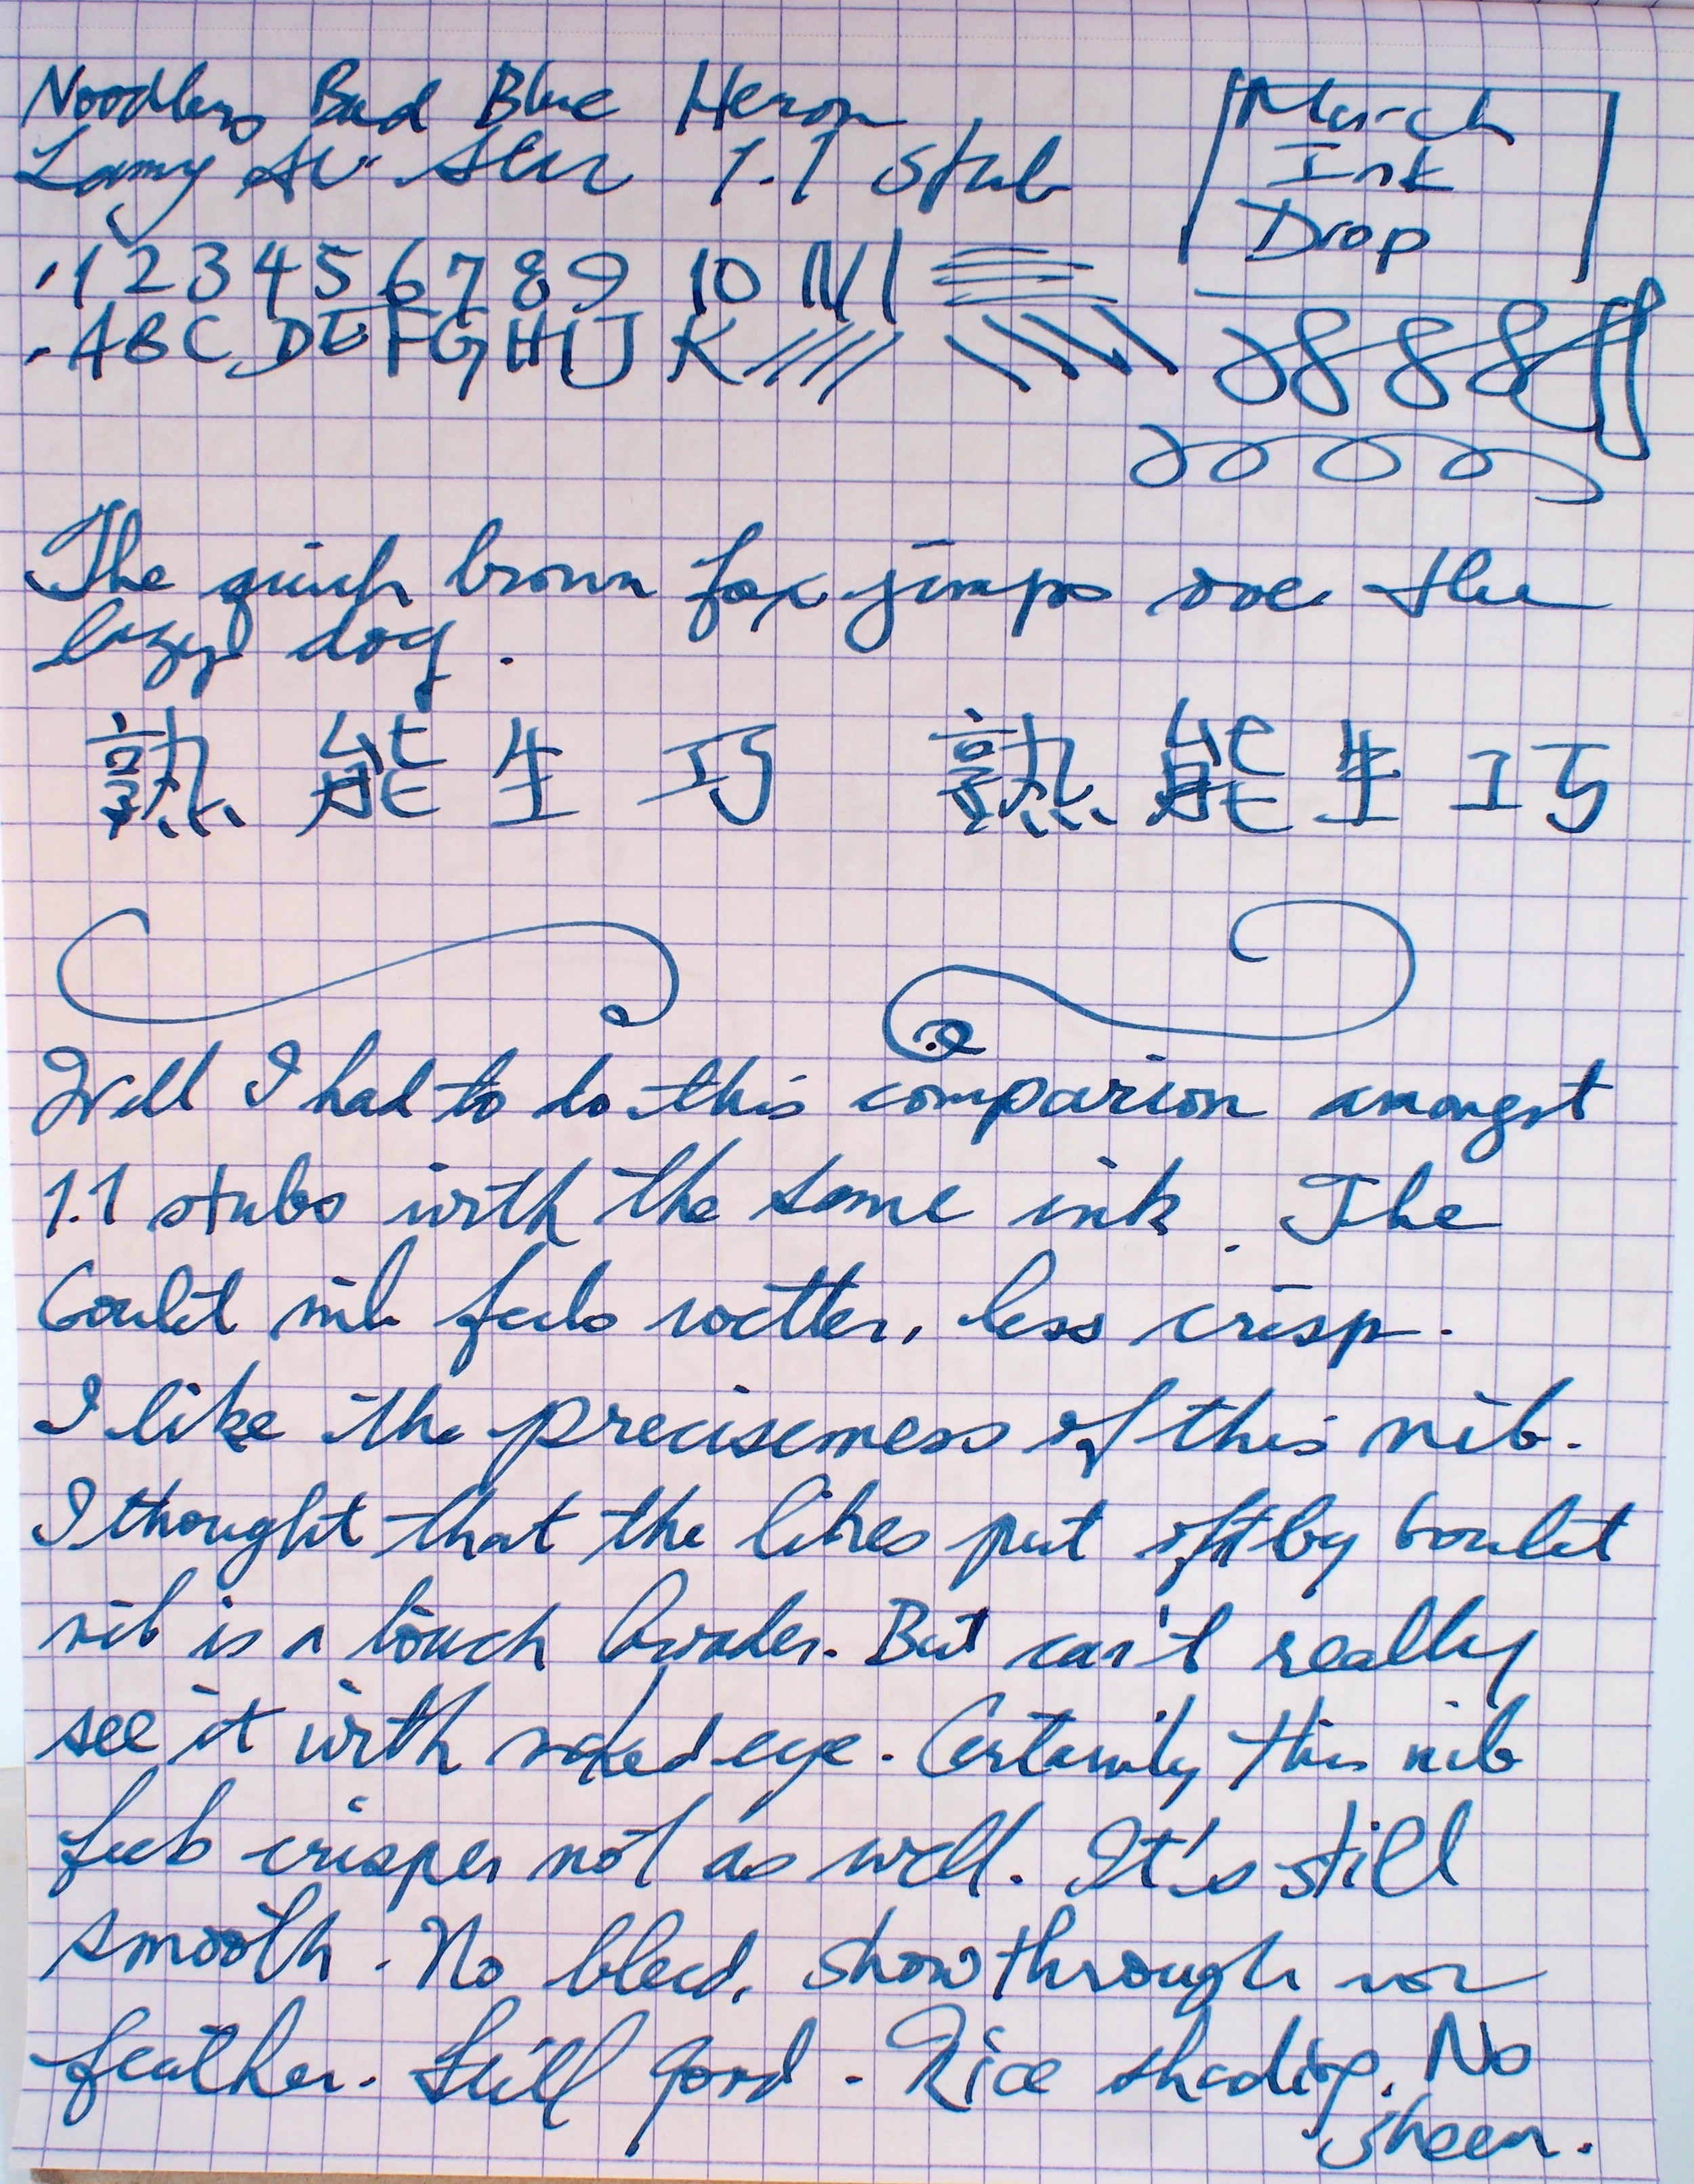 Noodlers Bad Blue Heron
Lamy Al-Star 1.1 stub
March
Ink
Drop
1 2 3 4 5 6 7 8 9 10
A B C D E F G H I J K
The quick brown fox jumps over the
lazy dog.
熟能生巧 熟能生巧
Well I had to do this comparion amongst
1.1 stubs with the same ink. The
Goulet nib feels wetter, less crisp.
I like the preciseness of this nib.
I thought that the lines put off by Goulet
nib is a touch broader. But can't really
see it with naked eye. Certainly this nib
feels crisper not as well. It's still
smooth. No bleed, showthrough nor
feather. Still good. Nice shading. No
sheen.